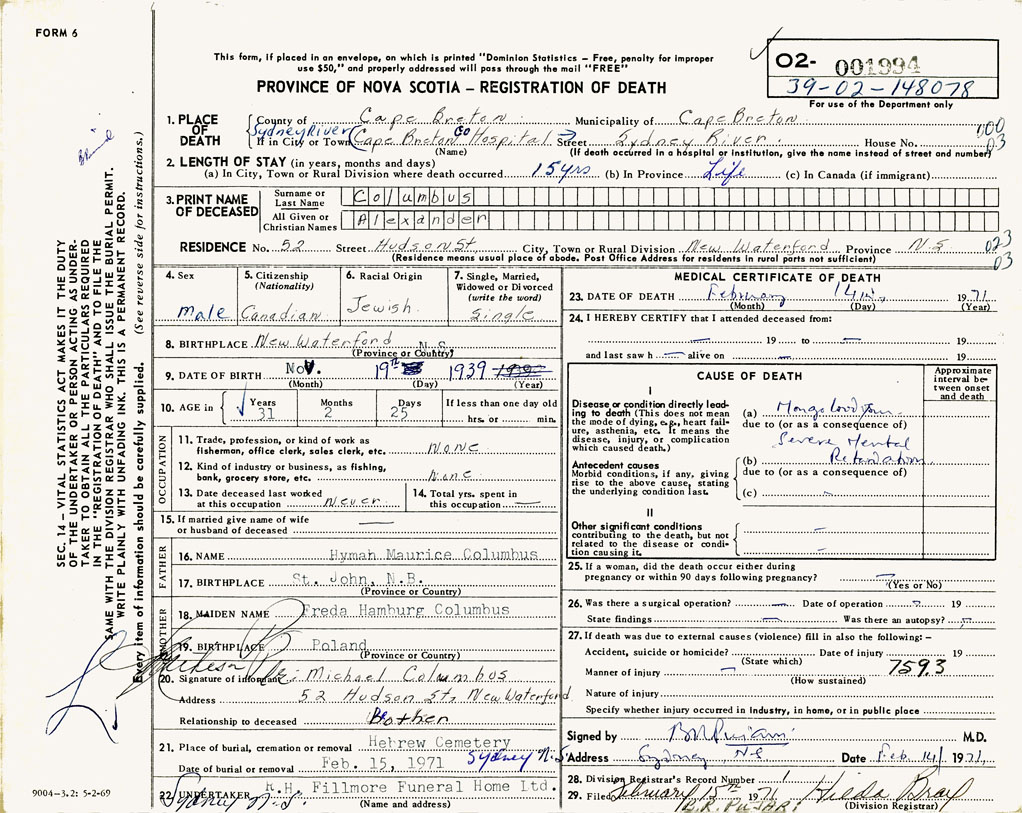 FORM 6
This form, if placed in an envelope, on which is printed "Dominion Statistics – Free, penalty for improper
use $50," and properly addressed will pass through the mail "FREE"
PROVINCE OF NOVA SCOTIA – REGISTRATION OF DEATH
02- 001994
39-02-148078
For use of the Department only
1. PLACE OF DEATH
County of Cape Breton Municipality of Cape Breton
Sydney River
If in City or Town Cape Breton Co Hospital Street Sydney River House No.
(Name) (If death occurred in a hospital or institution, give the name instead of street and number)
000
03
2. LENGTH OF STAY (in years, months and days)
(a) In City, Town or Rural Division where death occurred 15 yrs (b) In Province Life (c) In Canada (if immigrant)
3. PRINT NAME OF DECEASED
Surname or Last Name Columbus
All Given or Christian Names Alexander
RESIDENCE No. 52 Street Hudson St City, Town or Rural Division New Waterford Province N.S
(Residence means usual place of abode. Post Office Address for residents in rural parts not sufficient)
023
03
4. Sex
male
5. Citizenship
(Nationality)
Canadian
6. Racial Origin
Jewish
7. Single, Married, Widowed or Divorced
(write the word)
Single
8. BIRTHPLACE New Waterford N.S.
(Province or Country)
9. DATE OF BIRTH Nov. 19th 1939 1939
(Month) (Day) (Year)
10. AGE in
Years 31
Months 2
Days 25
If less than one day old
hrs. or min.
OCCUPATION
11. Trade, profession, or kind of work as
fisherman, office clerk, sales clerk, etc. none
12. Kind of industry or business, as fishing,
bank, grocery store, etc. None
13. Date deceased last worked
at this occupation never
14. Total yrs. spent in
this occupation —
15. If married give name of wife
or husband of deceased —
FATHER
16. NAME Hyman Maurice Columbus
17. BIRTHPLACE St. John, N.B.
(Province or Country)
MOTHER
18. MAIDEN NAME Freda Hamburg Columbus
19. BIRTHPLACE Poland
(Province or Country)
20. Signature of informant Michael Columbus
Address 52 Hudson St, New Waterford
Relationship to deceased Brother
21. Place of burial, cremation or removal Hebrew Cemetery
Date of burial or removal Feb. 15, 1971 Sydney N.S
22. UNDERTAKER Fillmore Funeral Home Ltd.
Sydney N.S.
(Name and address)
MEDICAL CERTIFICATE OF DEATH
23. DATE OF DEATH February 14th 1971
(Month) (Day) (Year)
24. I HEREBY CERTIFY that I attended deceased from:
— 19 — to — 19
and last saw h — alive on — 19
CAUSE OF DEATH
Approximate interval between onset and death
I
Disease or condition directly leading to death (This does not mean the mode of dying, e.g., heart failure, asthenia, etc. It means the disease, injury, or complication which caused death.)
(a) Mongoloidism
due to (or as a consequence of)
Severe Mental
Retardation
Antecedent causes
Morbid conditions, if any, giving rise to the above cause, stating the underlying condition last.
(b)
due to (or as a consequence of)
(c) –
II
Other significant conditions
contributing to the death, but not related to the disease or condition causing it.
25. If a woman, did the death occur either during
pregnancy or within 90 days following pregnancy? —
(Yes or No)
26. Was there a surgical operation? — Date of operation – 19
State findings — Was there an autopsy? –
27. If death was due to external causes (violence) fill in also the following: –
Accident, suicide or homicide? Date of injury 19
(State which)
Manner of injury — 759.3
(How sustained)
Nature of injury
Specify whether injury occurred in industry, in home, or in public place
Signed by B R Pujari M.D.
Address Sydney, NS Date Feb. 14 1971
28. Division Registrar's Record Number 1
29. Filed February 15th 1971 Hilda Bray
B.R. PUJARI (Division Registrar)
SEC. 14 – VITAL STATISTICS ACT MAKES IT THE DUTY
OF THE UNDERTAKER OR PERSON ACTING AS UNDERTAKER
TO OBTAIN ALL THE PARTICULARS REQUIRED
IN THE "REGISTRATION OF DEATH" AND TO FILE THE
SAME WITH THE DIVISION REGISTRAR WHO SHALL ISSUE THE BURIAL PERMIT.
WRITE PLAINLY WITH UNFADING INK. THIS IS A PERMANENT RECORD.
Every item of information should be carefully supplied. (See reverse side for instructions.)
9004-3.2: 5-2-69